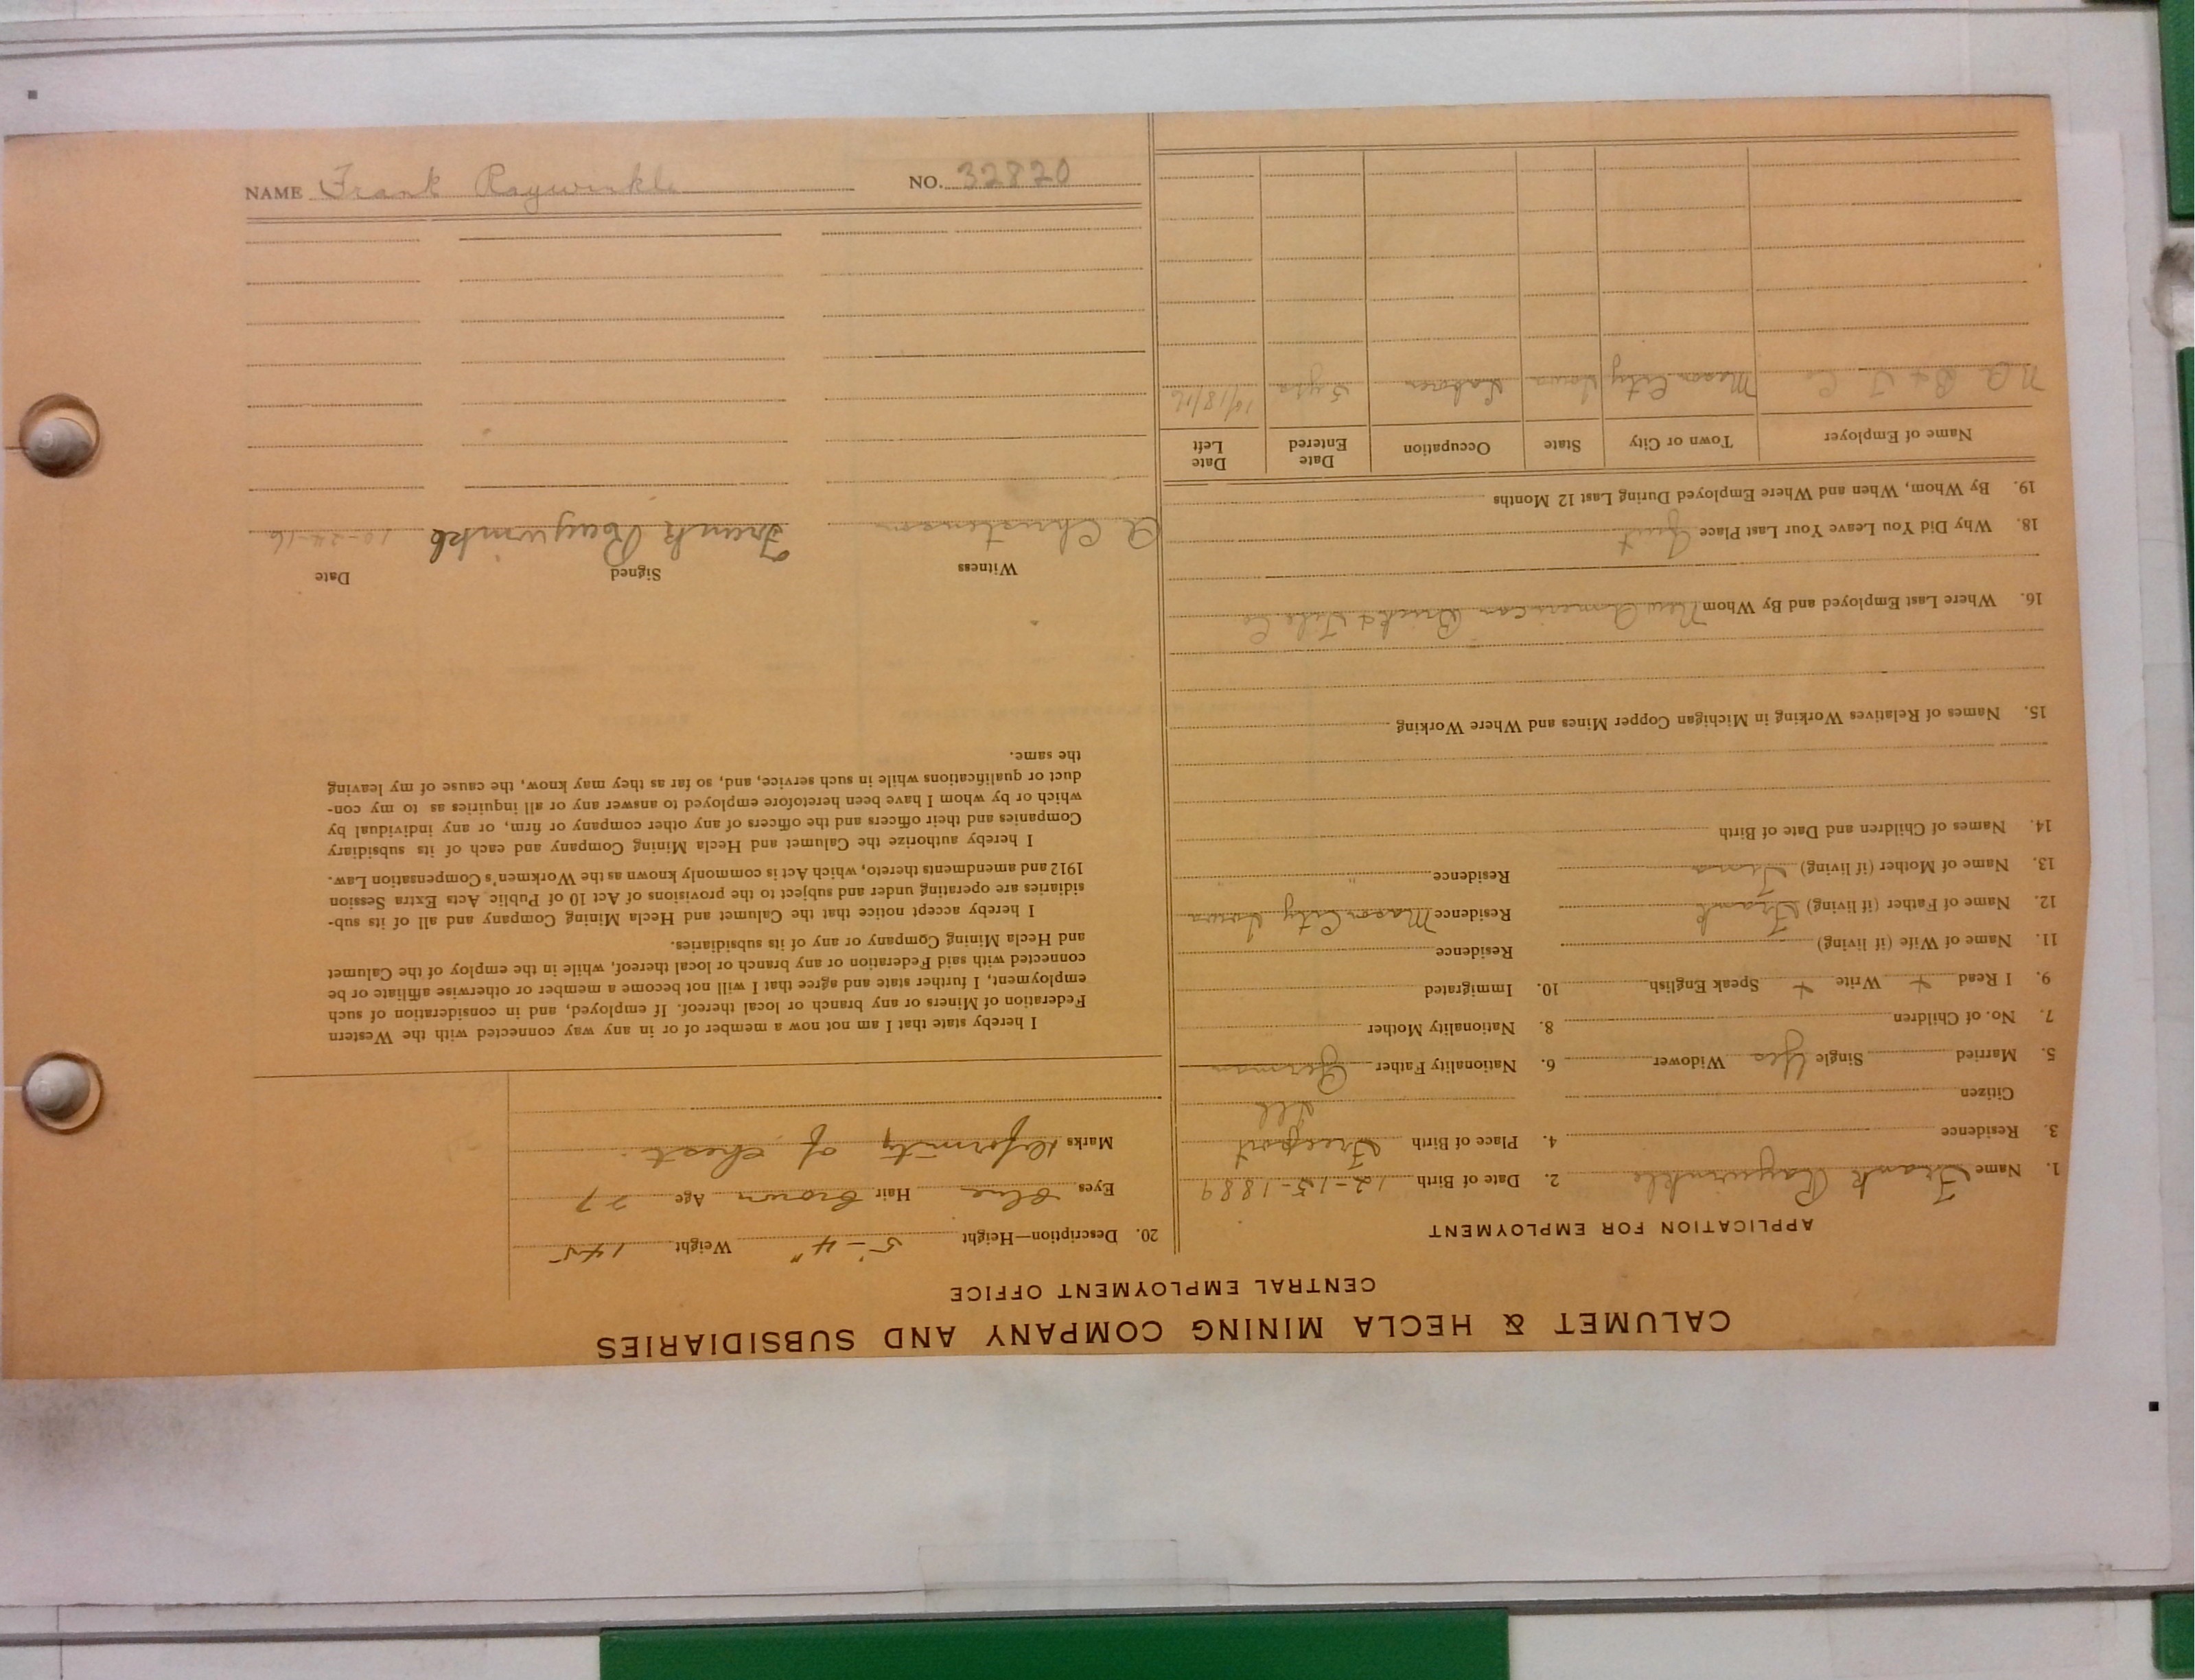 CALUMET & HECLA MINING COMPANY AND SUBSIDIARIES
CENTRAL EMPLOYMENT OFFICE
APPLICATION FOR EMPLOYMENT
1. Name Frank Raywinkle 2. Date of Birth 12-15-1889
3. Residence 4. Place of Birth Freeport
Citizen Ill
5. Married Single Yes Widower 6. Nationality Father German
7. No. of Children 8. Nationality Mother
9. I Read + Write + Speak English 10. Immigrated
11. Name of Wife (if living) Residence
12. Name of Father (if living) Frank Residence Mason City Iowa
13. Name of Mother (if living) Residence " "
14. Names of Children and Date of Birth
15. Names of Relatives Working in Michigan Copper Mines and Where Working
16. Where Last Employed and By Whom New American Brick & Tile Co
18. Why Did You Leave Your Last Place Quit
19. By Whom, When and Where Employed During Last 12 Months
Name of Employer Town or City State Occupation Date Entered Date Left
N A B & T Co Mason City Iowa Laborer 5 yrs 10/18/16
20. Description—Height 5'-4" Weight 145
Eyes Blue Hair Brown Age 27
Marks Deformity of Chest.
I hereby state that I am not now a member of or in any way connected with the Western
Federation of Miners or any branch or local thereof. If employed, and in consideration of such
employment, I further state and agree that I will not become a member or otherwise affiliate or be
connected with said Federation or any branch or local thereof, while in the employ of the Calumet
and Hecla Mining Company or any of its subsidiaries.
I hereby accept notice that the Calumet and Hecla Mining Company and all of its sub-
sidiaries are operating under and subject to the provisions of Act 10 of Public Acts Extra Session
1912 and amendments thereto, which Act is commonly known as the Workmen's Compensation Law.
I hereby authorize the Calumet and Hecla Mining Company and each of its subsidiary
Companies and their officers and the officers of any other company or firm, or any individual by
which or by whom I have been heretofore employed to answer any or all inquiries as to my con-
duct or qualifications while in such service, and, so far as they may know, the cause of my leaving
the same.
Witness Signed Date
A Christenson Frank Raywinkle 10-24-16
NAME Frank Raywinkle NO. 32820